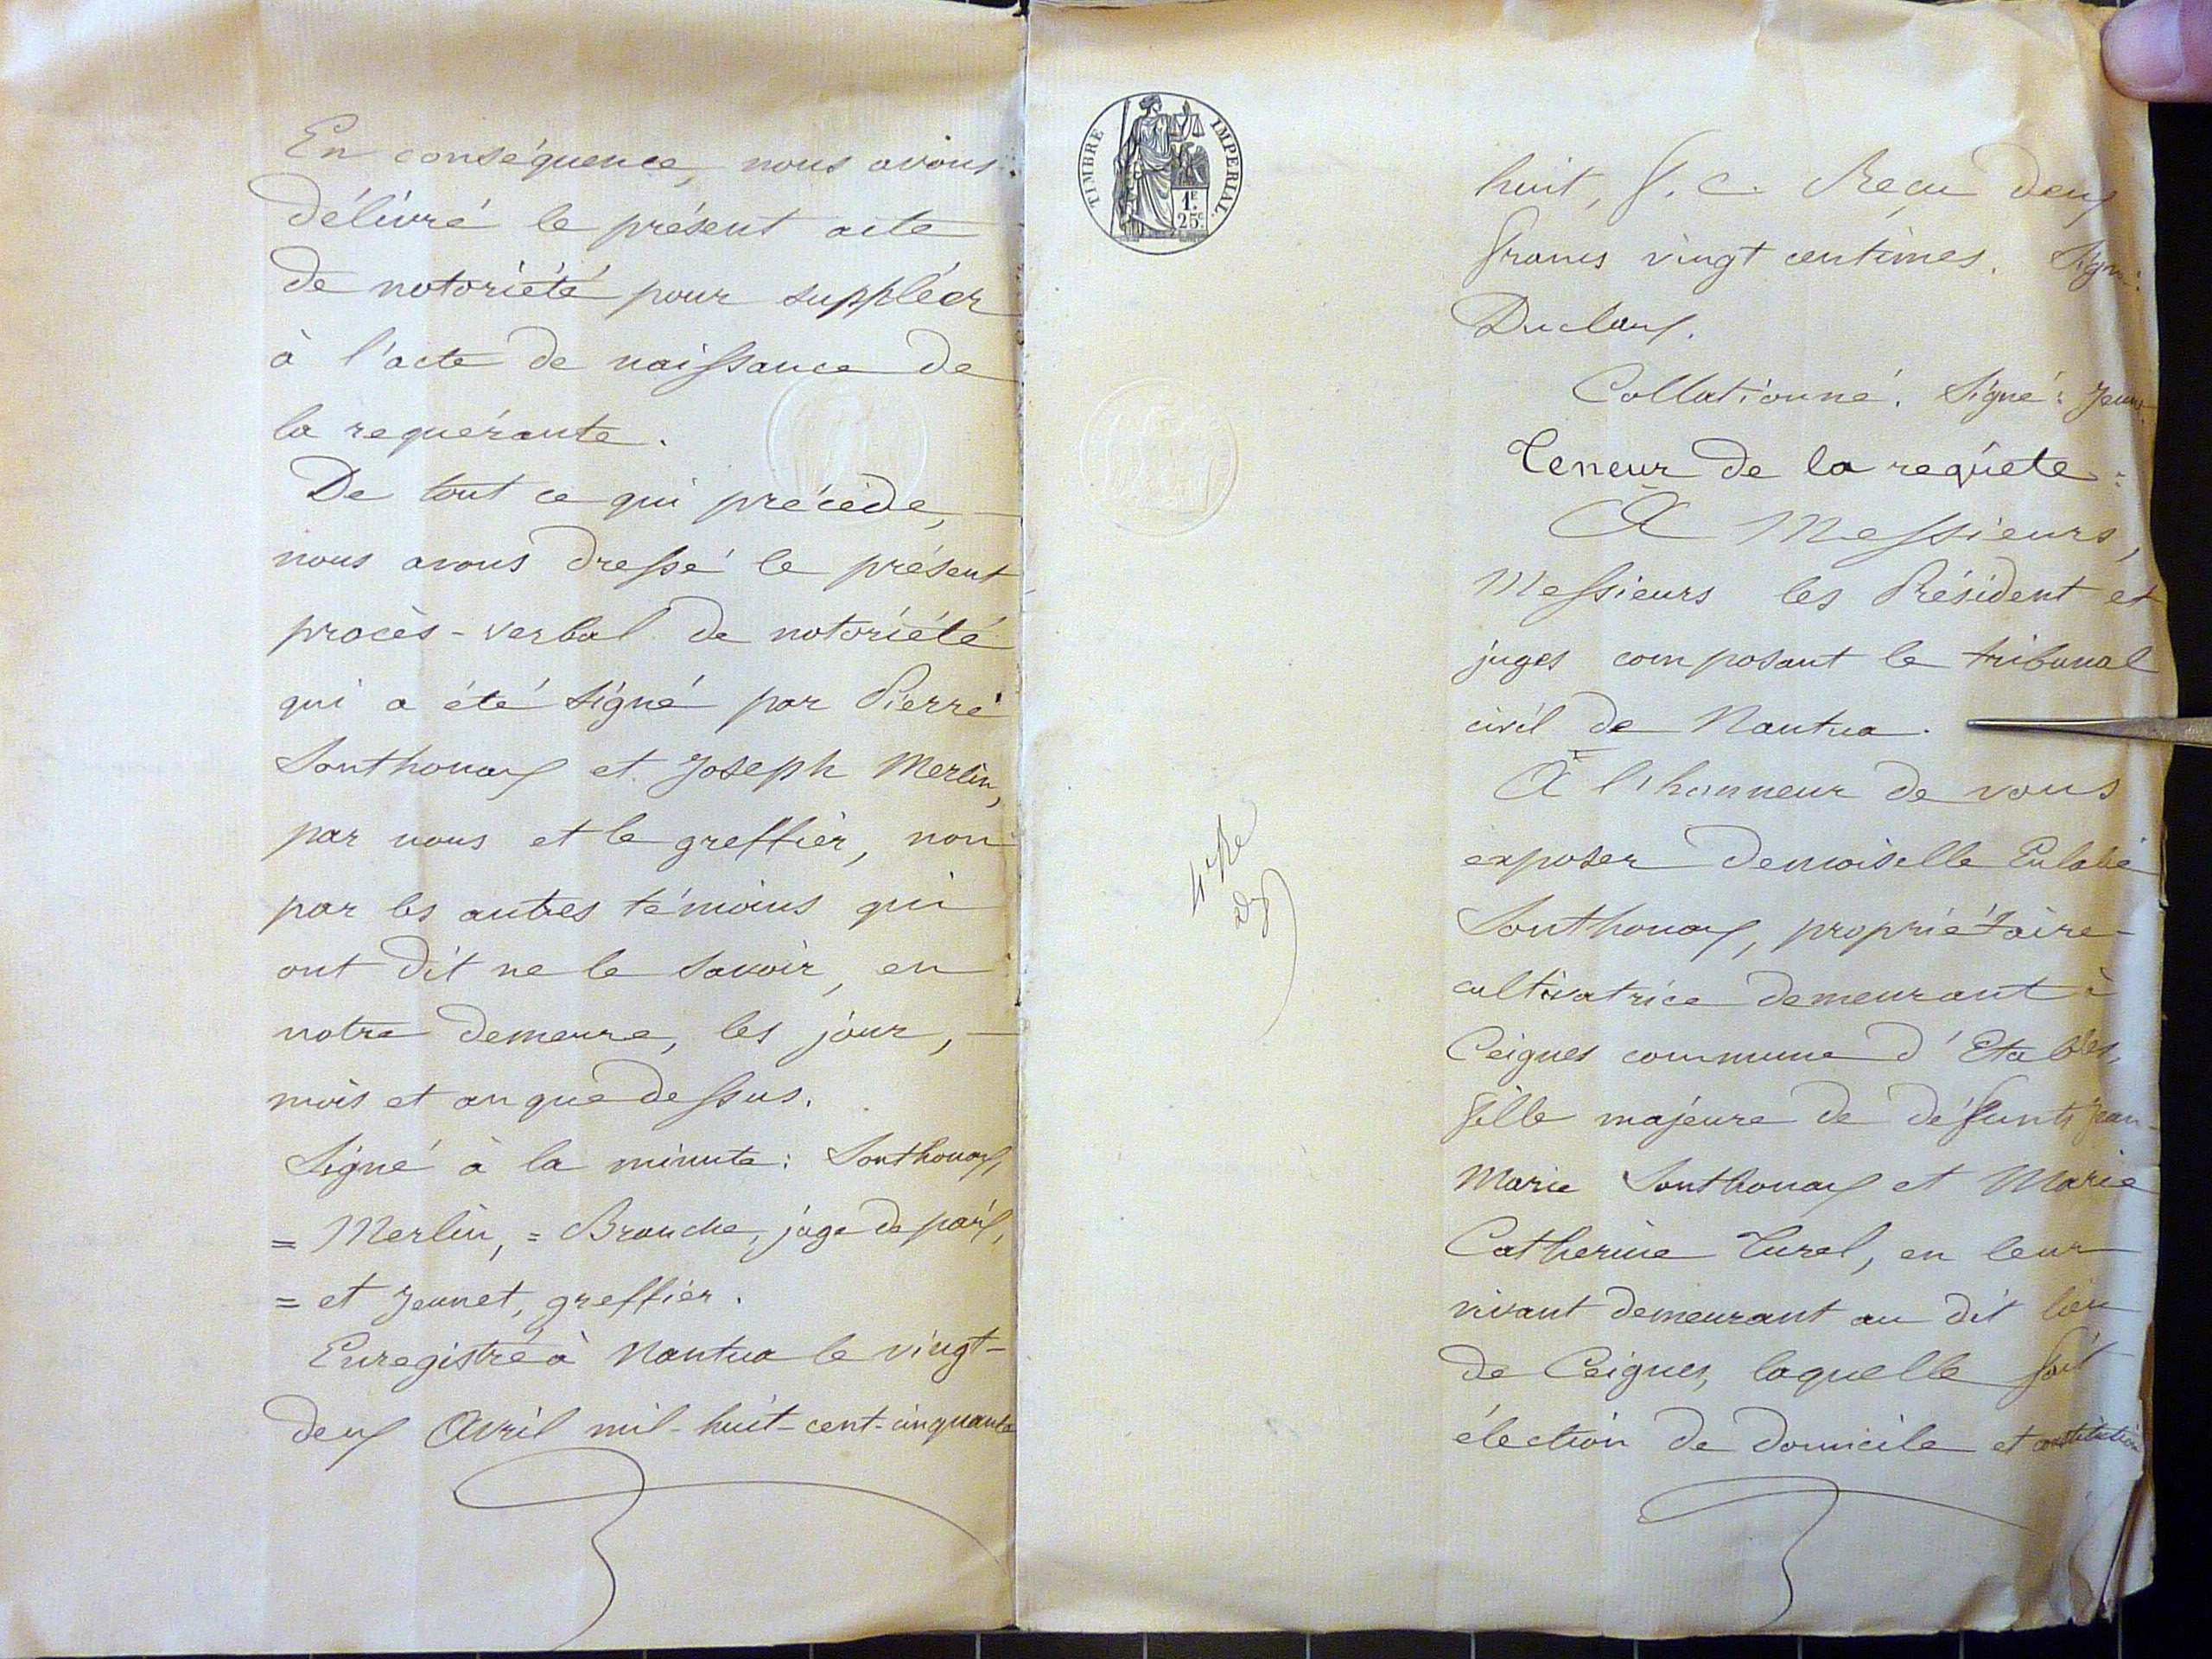 En conséquence, nous avons
délivré le présent acte
de notoriété pour suppléer
à l'acte de naissance de
la requérante.
De tout ce qui précède,
nous avons dressé le présent
procès-verbal de notoriété
qui a été signé par Pierre
Sonthonax et Joseph Merlin,
par nous et le greffier, non
par les autres témoins qui
ont dit ne le savoir, en
notre demeure, les jour,
mois et an que dessus.
Signé à la minute: Sonthonax,
= Merlin, = Branche, juge de paix,
= et Jeunet, greffier.
Enregistré à Nantua le vingt-
deux Avril mil-huit-cent-cinquante
TIMBRE IMPERIAL.
1F
25c
huit, f. c. Reçu deux
francs vingt centimes. Signé:
Duclaux.
Collationné. Signé: Jeunet
Teneur de la requête:
A Messieurs,
Messieurs les Président et
juges composant le tribunal
civil de Nantua.
A l'honneur de vous
exposer demoiselle Eulalie
Sonthonax, propriétaire-
cultivatrice demeurant à
Ceignes commune d'Etables,
fille majeure de défunts Jean-
Marie Sonthonax et Marie
Catherine Turel, en leur
vivant demeurant au dit lieu
de Ceignes, laquelle fait
élection de domicile et constitution